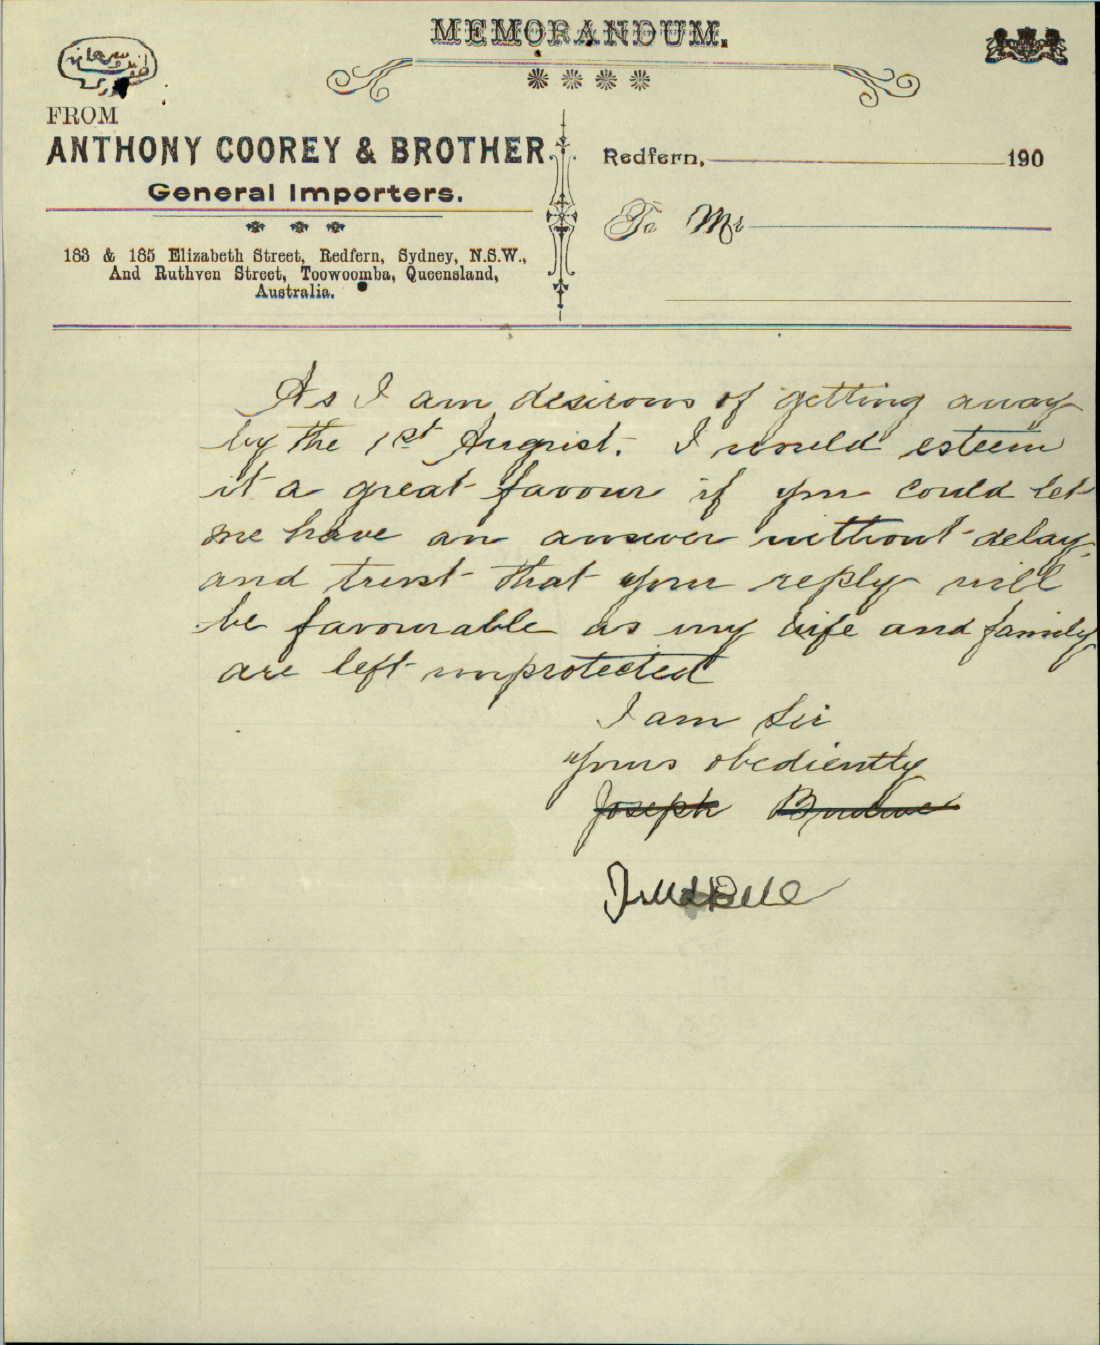 MEMORANDUM.
FROM
ANTHONY COOREY & BROTHER.
General Importers.
183 & 185 Elizabeth Street, Redfern, Sydney, N.S.W.,
And Ruthven Street, Toowoomba, Queensland,
Australia.
Redfern, 190
To Mr
As I am desirous of getting away
by the 1st August. I would esteem
it a great favour if you could let
me have an answer without delay,
and trust that your reply will
be favourable as my wife and family
are left unprotected
I am Sir
yours obediently
Joseph